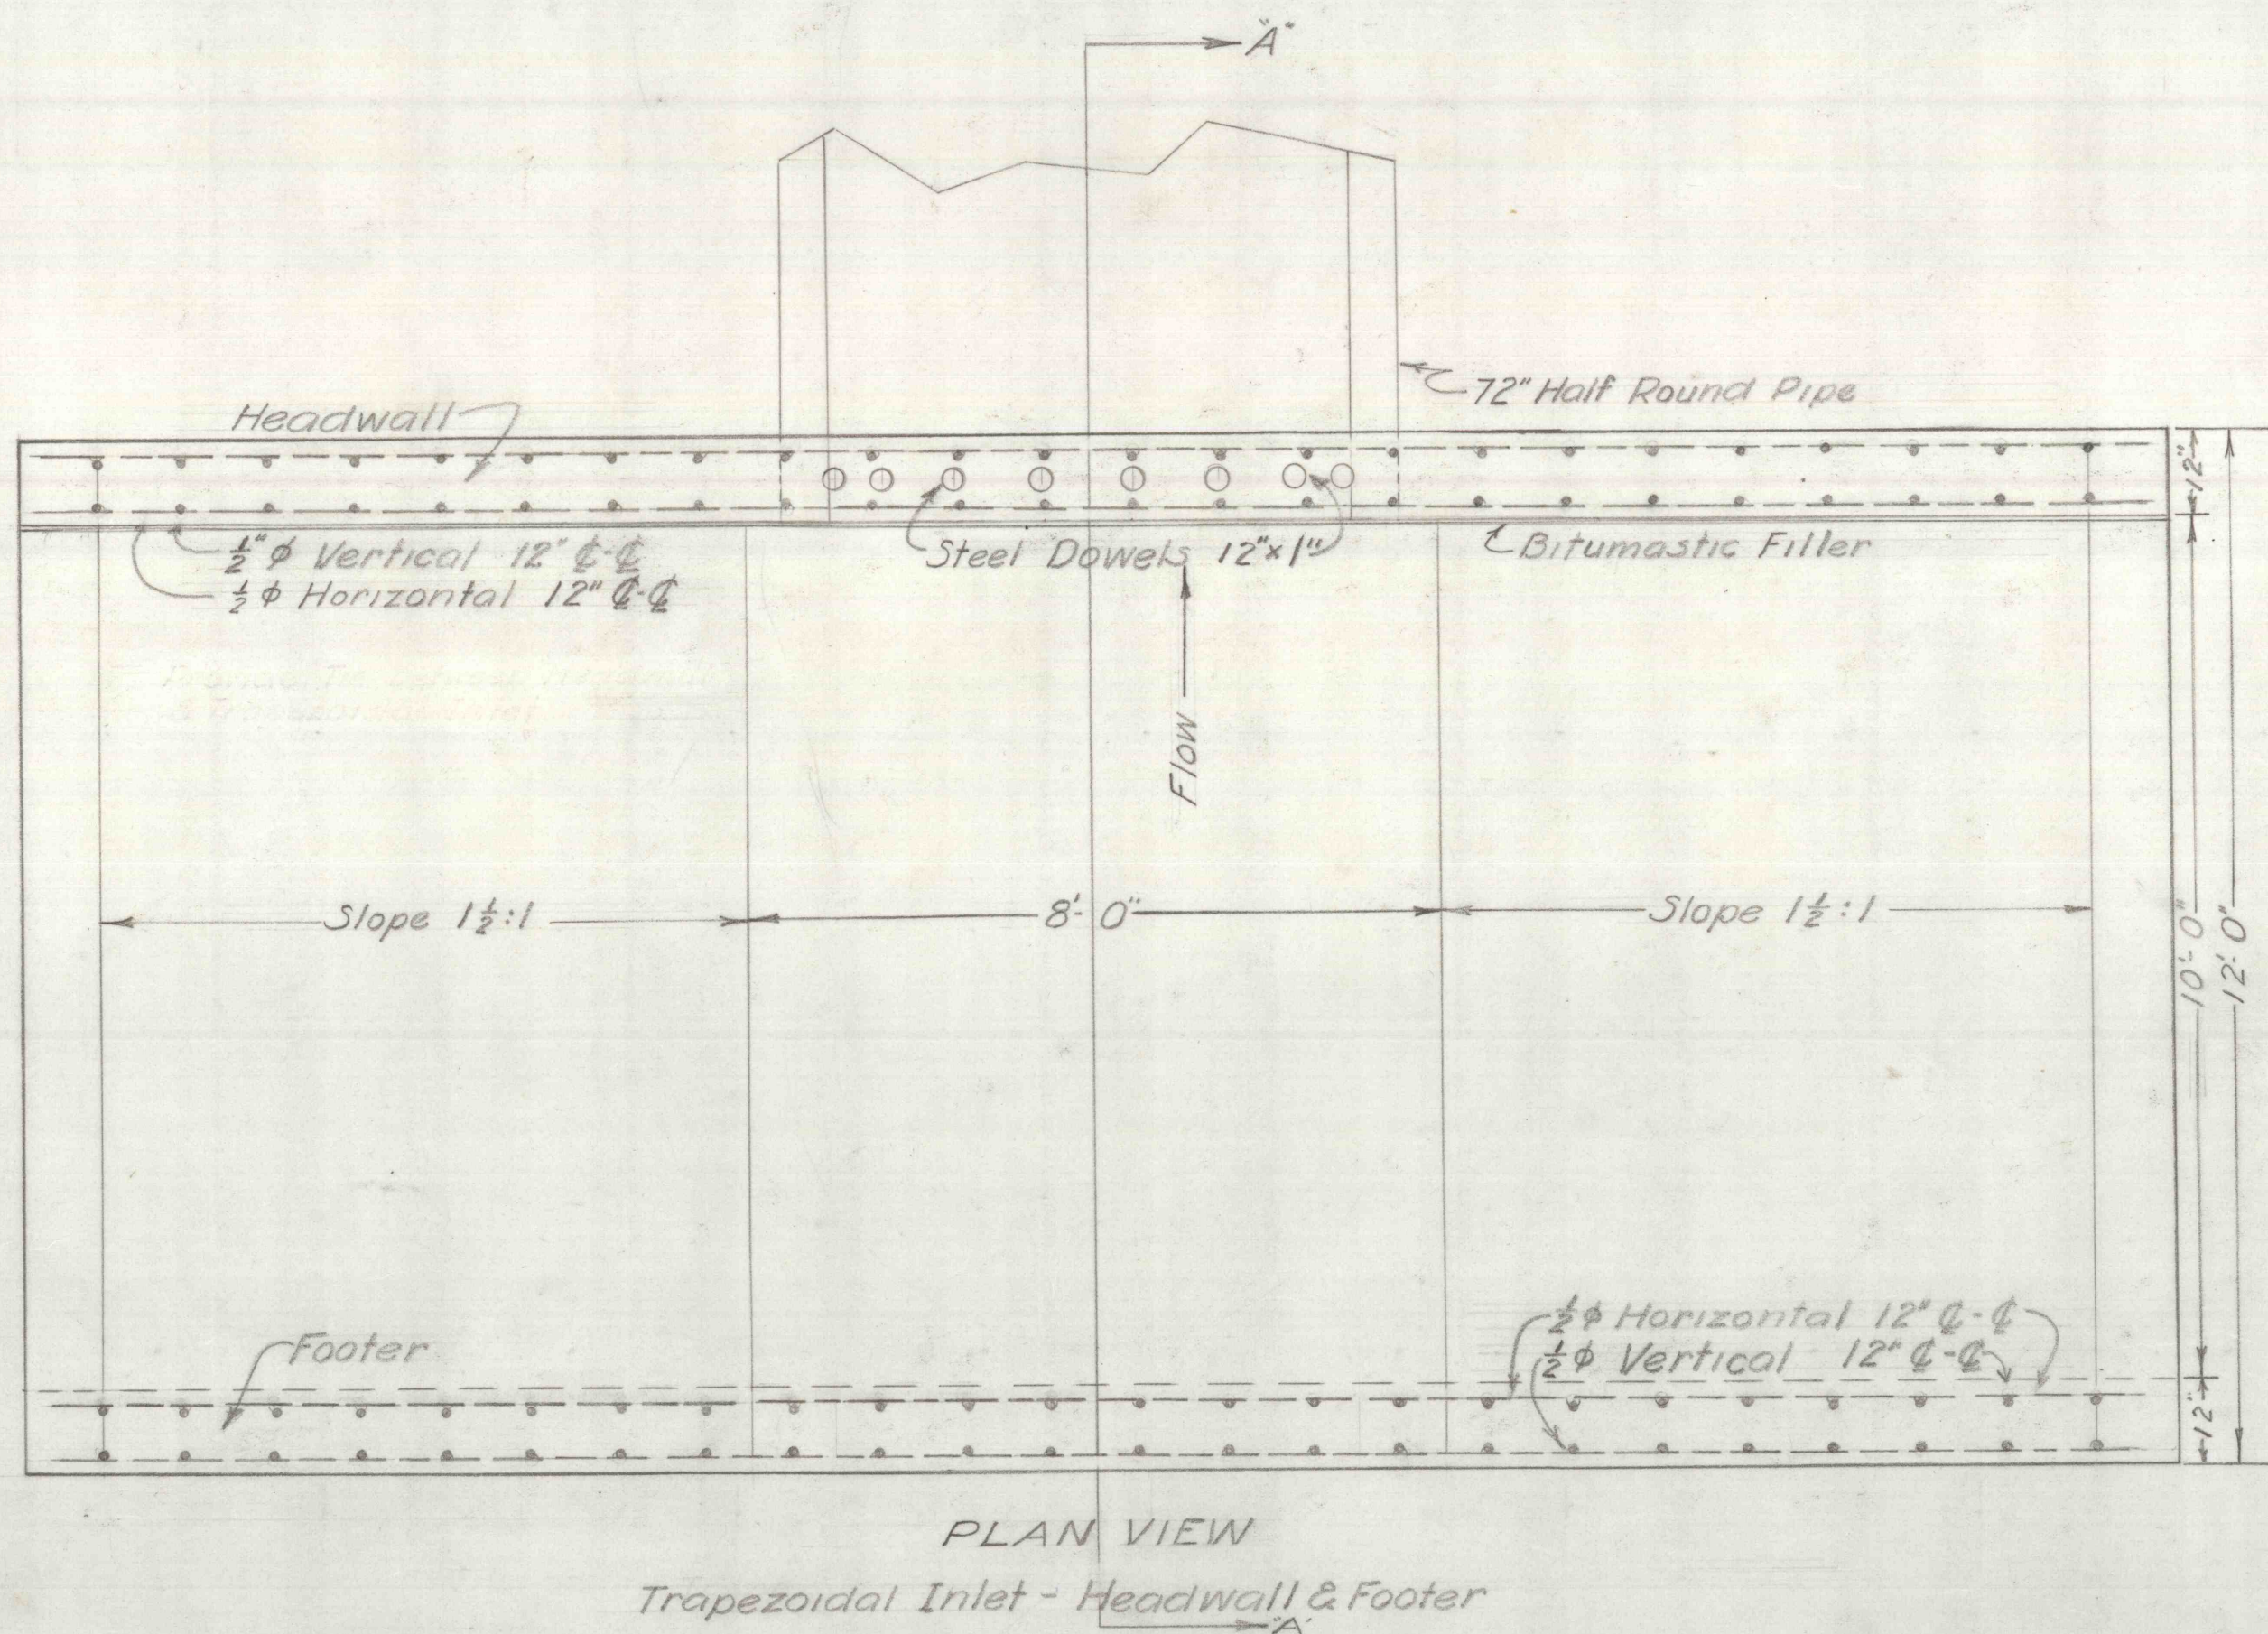 "A"
72" Half Round Pipe
Headwall
12"
½" ϕ Vertical 12" ℄-℄
½ ϕ Horizontal 12" ℄-℄
Steel Dowels 12"x1"
Bitumastic Filler
Flow
Slope 1½:1
8'-0"
Slope 1½:1
10'-0"
12'-0"
Footer
½ ϕ Horizontal 12" ℄-℄
½ ϕ Vertical 12" ℄-℄
12"
PLAN VIEW
Trapezoidal Inlet - Headwall & Footer
"A"